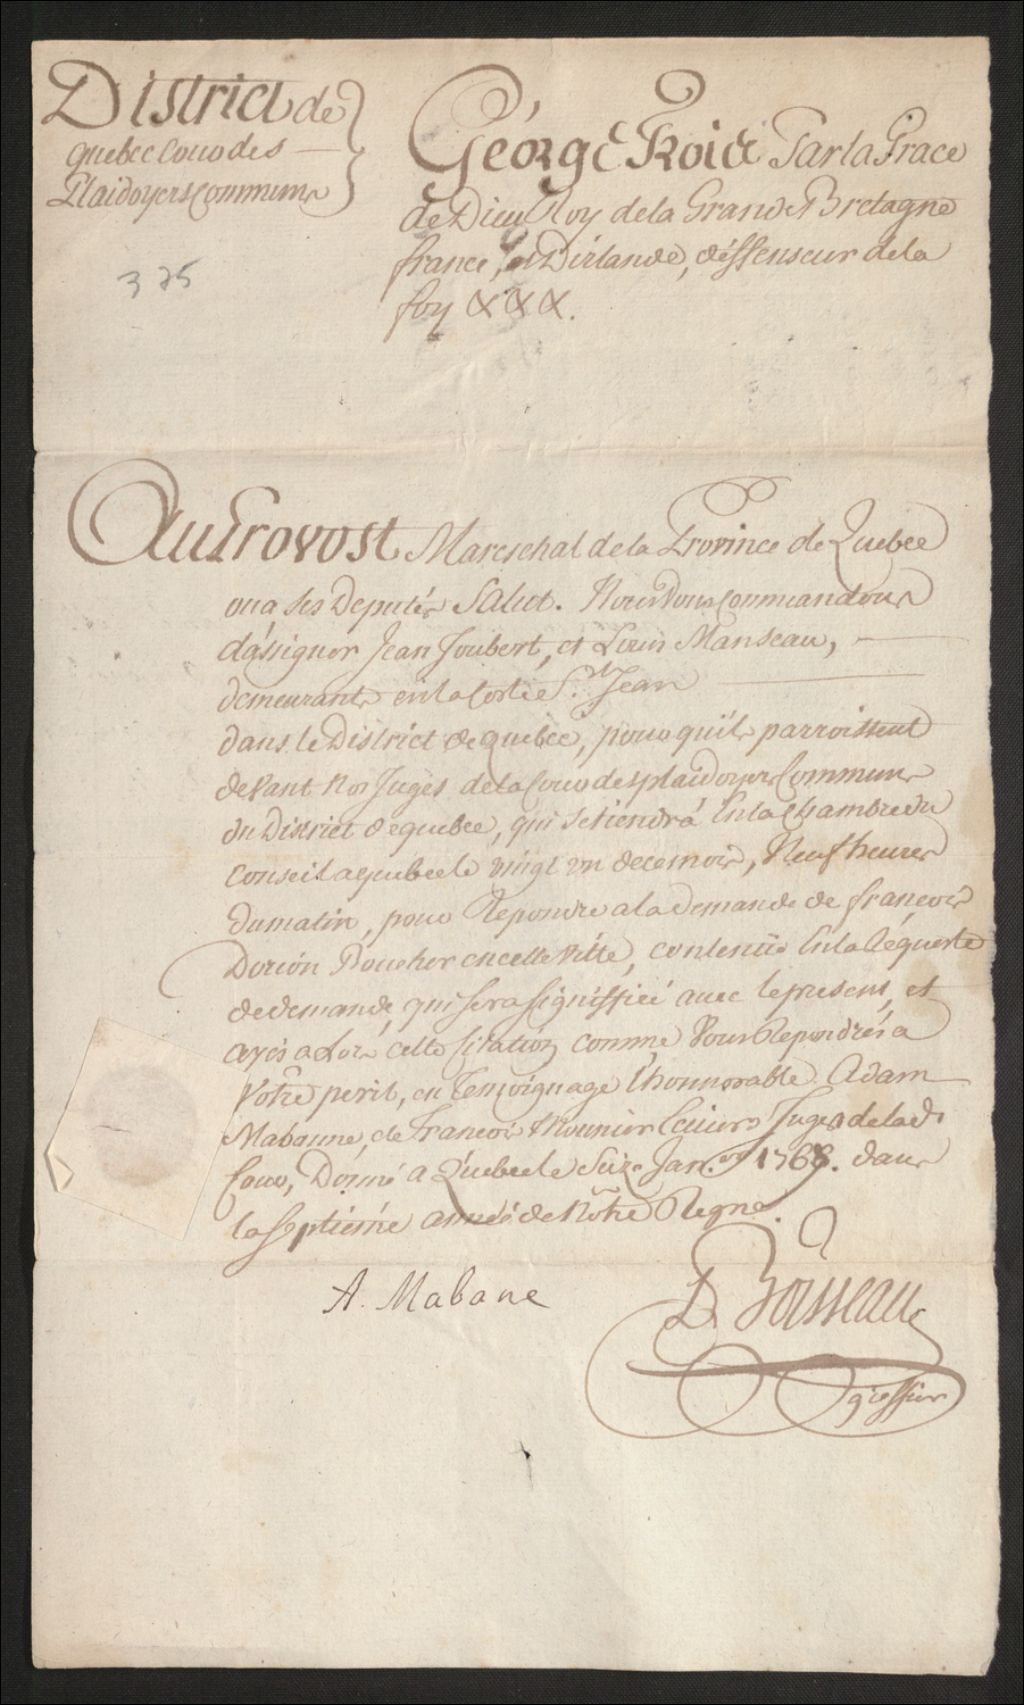 District de
quebec Cour des
Plaidoyers Communs
375
George Trois Par la Grace
de Dieu Roy de la Grande Bretagne
france, et Dirlande, déffenseur de la
foy &&&.
Au Provost Mareschal de la Province de Quebec
ou a ses Deputés Salut. Nous Vous Commandons
d'assigner Jean Joubert, et Louis Manseau,
demeurants en la Coste St. Jean
dans le District de quebec, pour quils parroissent
devant Nos Juges de la Cour des plaidoyers Communs
du District de quebec, qui se tiendrá En la Chambre du
Conseil a quebec le vingt un Neuf heures
du matin, pour Repondre a la demande de françois
Dorion Boucher en cette Ville, contenüe En la Requeste
de demande, qui sera signiffiée avec le present, et
ayés a Loré cette Citation comme Vous Repondrés a
Votre peril, en Temoignage l'honnorable Adam
Mabanne, et francois Mounier Ecuiers Juges de lad.
Cour, Donné a Québec le Seize Janer. 1768. dans
la septiéme année de Nôtre Regne.
A. Mabane
D. Boisseau
greffier